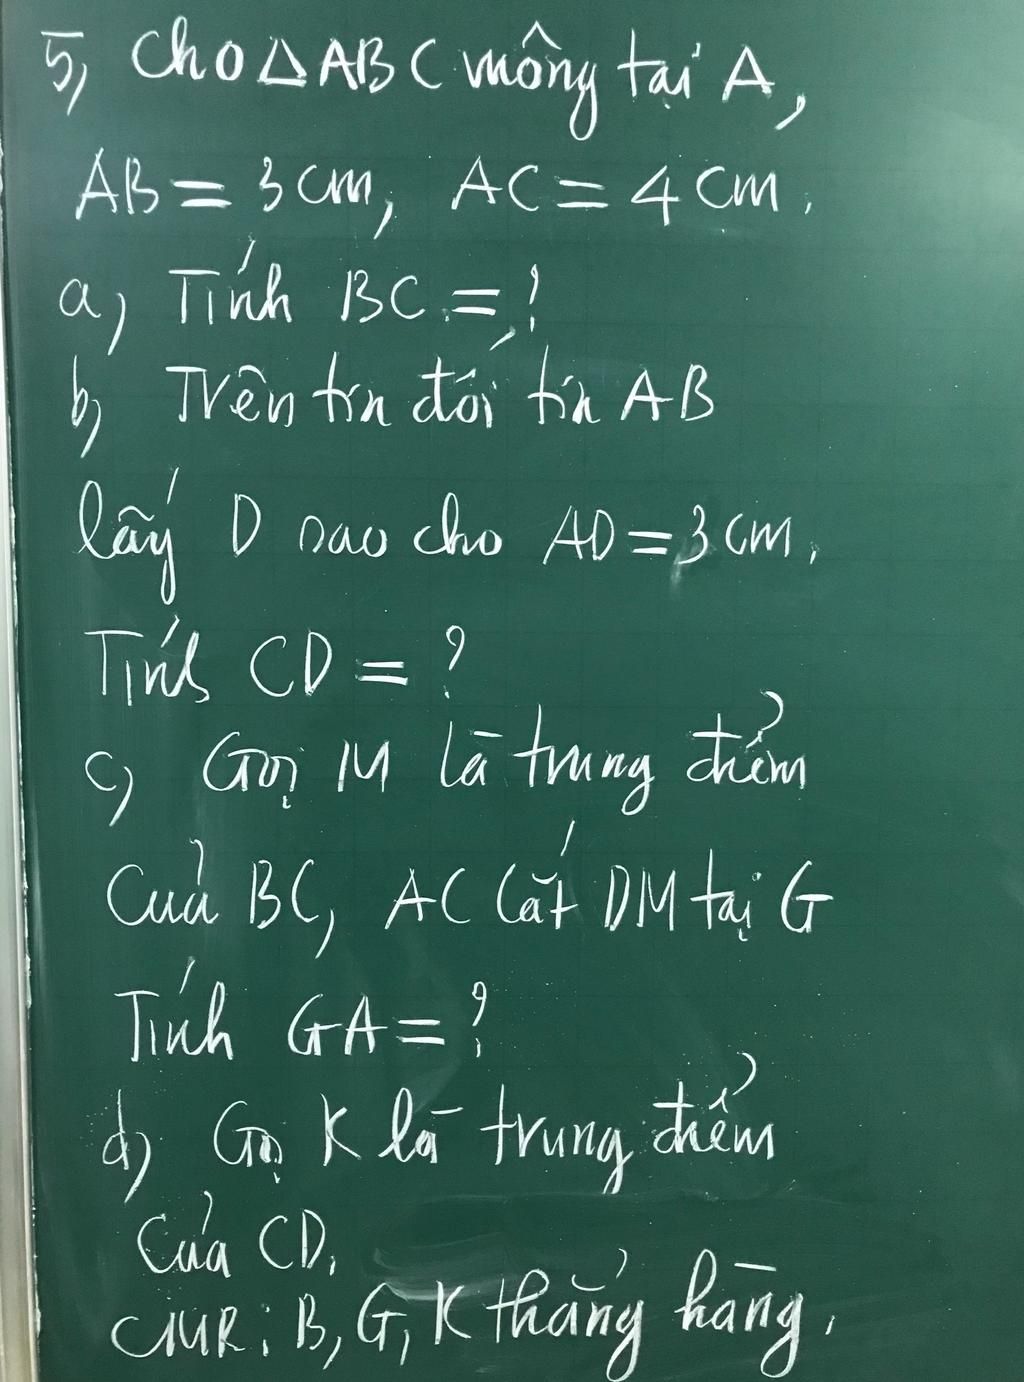 5, Cho △ABC vuông tại A,
AB = 3 cm, AC = 4 cm.
a, Tính BC = ?
b, Trên tia đối tia AB
lấy D sao cho AD = 3 cm.
Tính CD = ?
c, Gọi M là trung điểm
của BC, AC cắt DM tại G
Tính GA = ?
d, Gọi K là trung điểm
của CD.
CMR: B, G, K thẳng hàng.